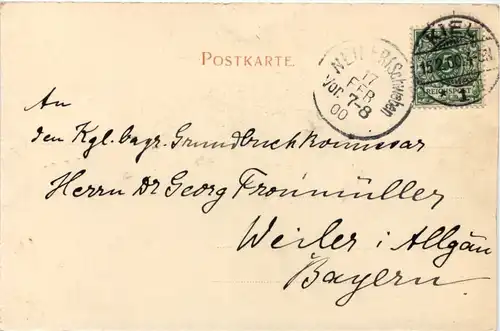 KIEL
15.2.00.
REICHSPOST
1
POSTKARTE.
WEILER (Schwaben)
17
FEB
Vor. 7-8
00
An
den Kgl. bayr. Grundbuchkommissar
Herrn Dr Georg Fronmüller
Weiler i. Allgäu
Bayern.